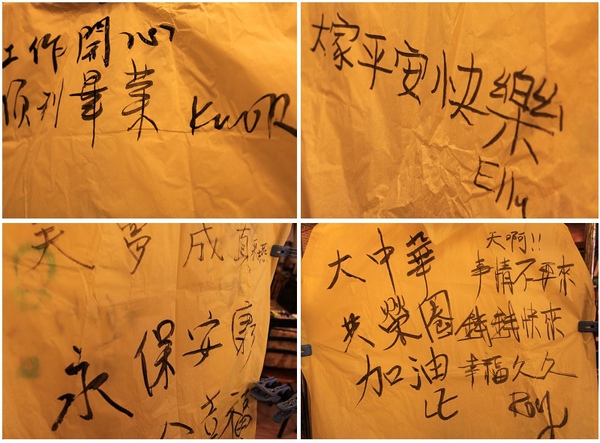 工作開心
順利畢業
大家平安快樂
Elly
夢成真
永保安康
吉福
大中華
共榮圈
加油
天啊!!
事情不要來
錢錢快來
幸福久久
Roy